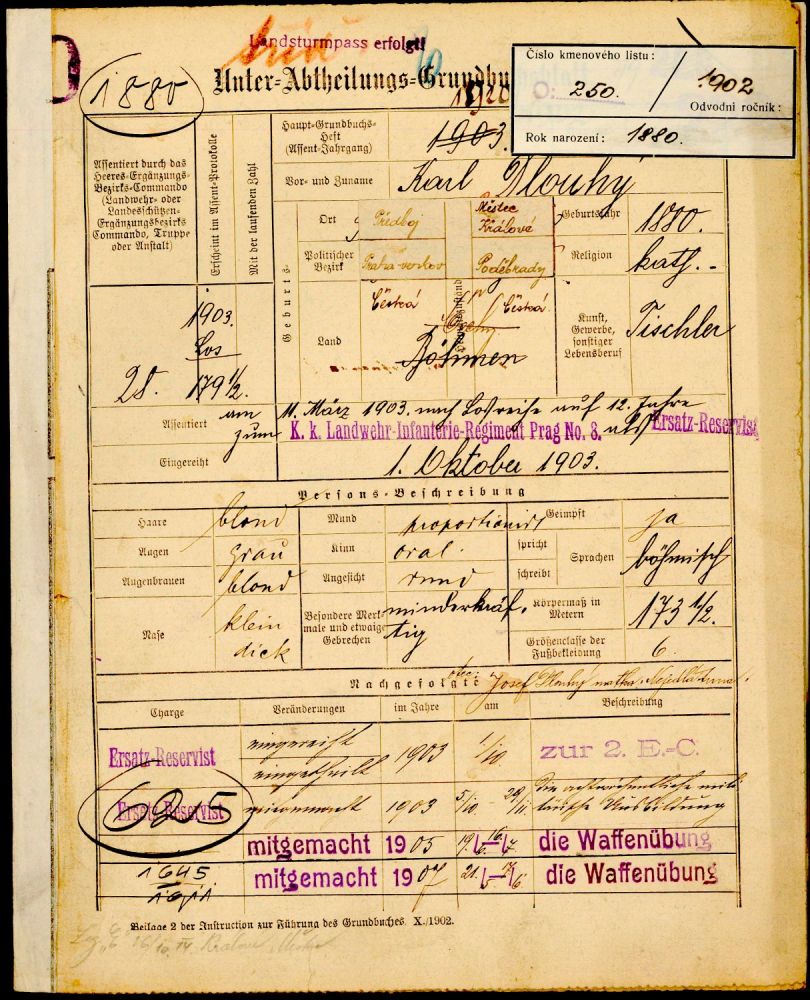 Landsturmpass erfolgt!
1880
Unter-Abtheilungs-Grundbu
Číslo kmenového listu:
O: 250.
1902
Odvodní ročník:
Rok narození: 1880.
Assentiert durch das Heeres-Ergänzungs-Bezirks-Commando (Landwehr- oder Landesschützen-Ergänzungsbezirks Commando, Truppe oder Anstalt)
Erscheint im Assent-Protokolle
Mit der laufenden Zahl
Haupt-Grundbuchs-Heft (Assent-Jahrgang)
1903.
Vor- und Zuname
Karl Dlouhý
Geburts-
Ort
Předboj
Městec Králové
Geburtsjahr
1880.
Politischer Bezirk
Praha-venkov
Poděbrady
Religion
kath.-
Land
Česká
Česká
Böhmen
Kunst, Gewerbe, sonstiger Lebensberuf
Tischler
1903.
Los
28. 179 1/2.
Assentiert
am 11. März 1903. nach Losreihe auf 12. Jahre
zum K. k. Landwehr-Infanterie-Regiment Prag No. 8. als Ersatz-Reservist
Eingereiht
1. Oktober 1903.
Persons-Beschreibung
Haare
blond
Mund
proportionirt
Geimpft
ja
Augen
grau
Kinn
oval.
spricht
schreibt
Sprachen
böhmisch
Augenbrauen
blond
Angesicht
rund
Nase
klein
dick
Besondere Merkmale und etwaige Gebrechen
minderkräftig
Körpermaß in Metern
173 1/2.
Größenclasse der Fußbekleidung
6.
Nachgefolgte
otec: Josef Dlouhý matka: Nejedlá Anna.
Charge
Veränderungen
im Jahre
am
Beschreibung
Ersatz-Reservist
eingereiht
eingetheilt
1903
1/10.
zur 2. E.-C.
Ersatz-Reservist
625
1903
5/10. - 29/11.
die achtwöchentliche militärische Ausbildung
mitgemacht 1905
die Waffenübung
1645
1611
mitgemacht 1907
die Waffenübung
Beilage 2 der Instruction zur Führung des Grundbuches. X./1902.